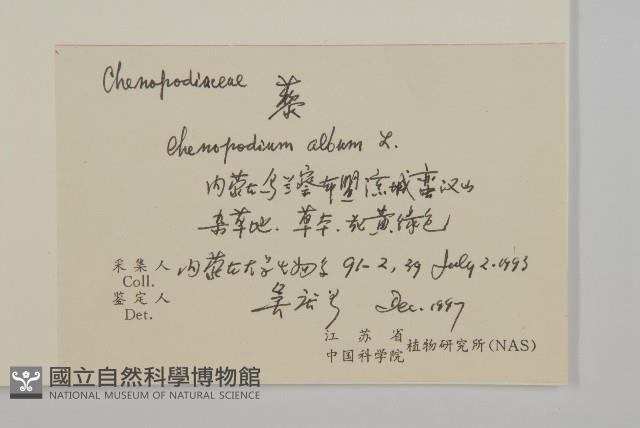 Chenopodiaceae 藜
Chenopodium album L.
内蒙古乌兰察布盟凉城蛮汉山
杂草地. 草本. 花黄绿色
采集人 内蒙古大学生物系 91-2, 39 July 2. 1993
Coll.
鉴定人 Dec. 1997
Det.
江苏省
中国科学院 植物研究所(NAS)
國立自然科學博物館
NATIONAL MUSEUM OF NATURAL SCIENCE